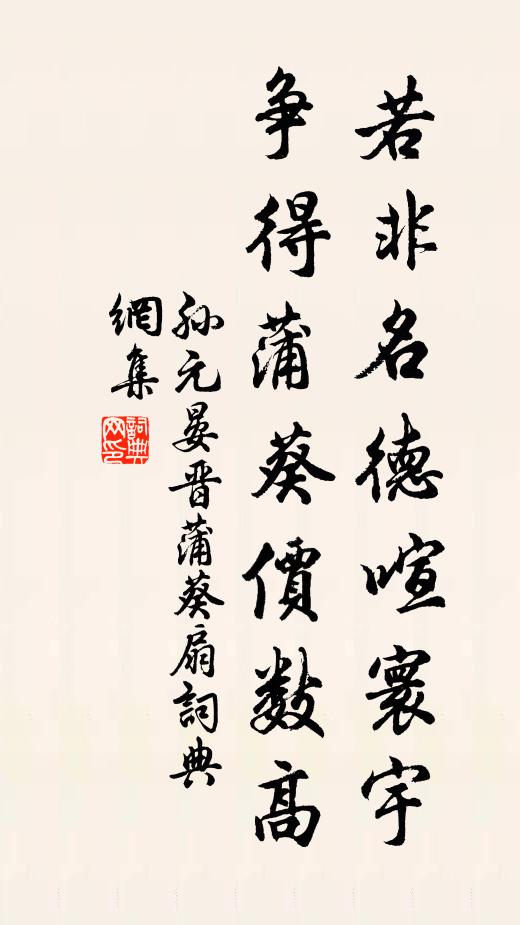 若非名德喧寰宇
争得蒲葵價數高
孙元晏晋蒲葵扇詞典
網集
詞典网印